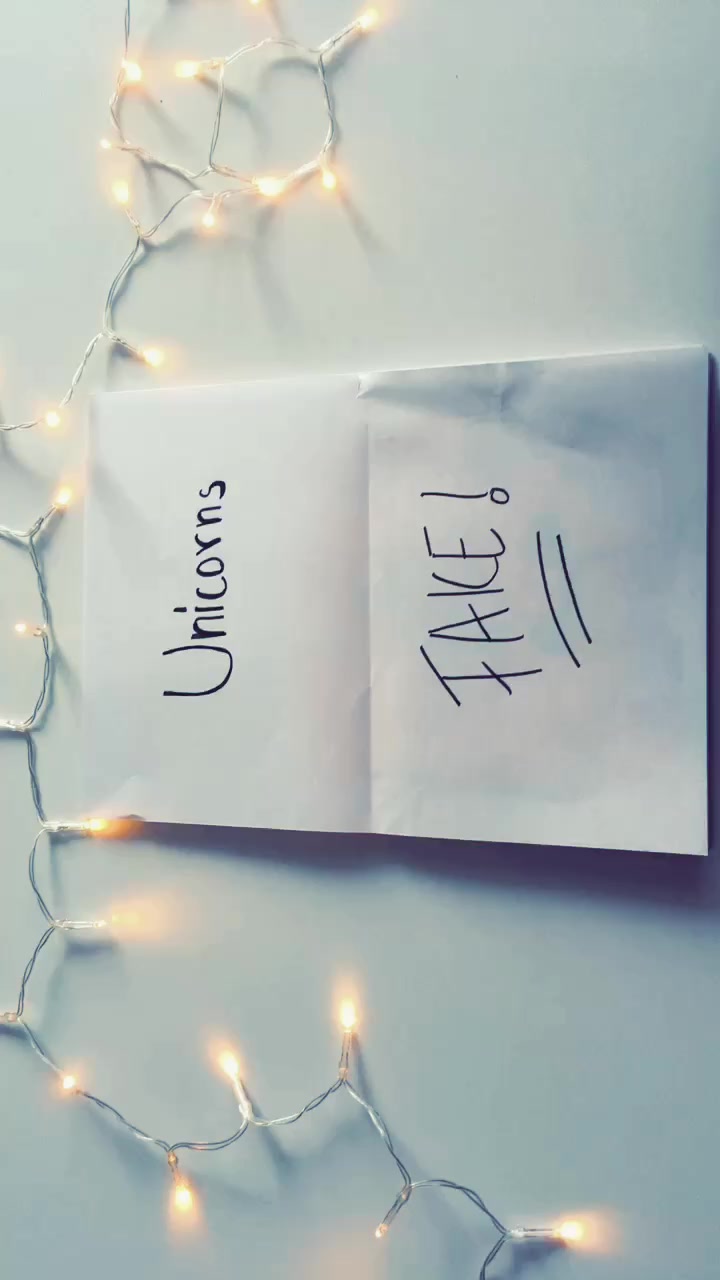 Unicorns
FAKE!